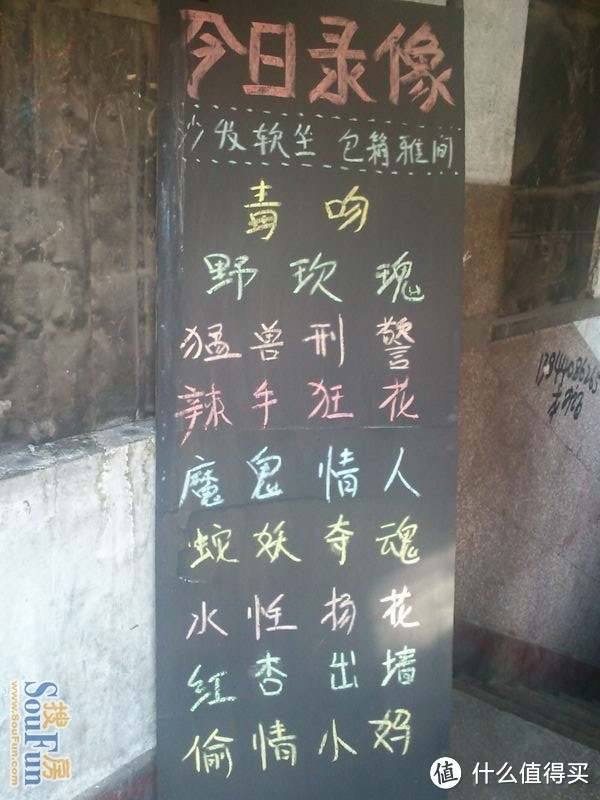 今日录像
沙发软坐 包箱雅间
毒吻
野玫瑰
猛兽刑警
辣手狂花
魔鬼情人
蛇妖夺魂
水性扬花
红杏出墙
偷情小妈
搜房
SouFun
www.SouFun.com
值 什么值得买